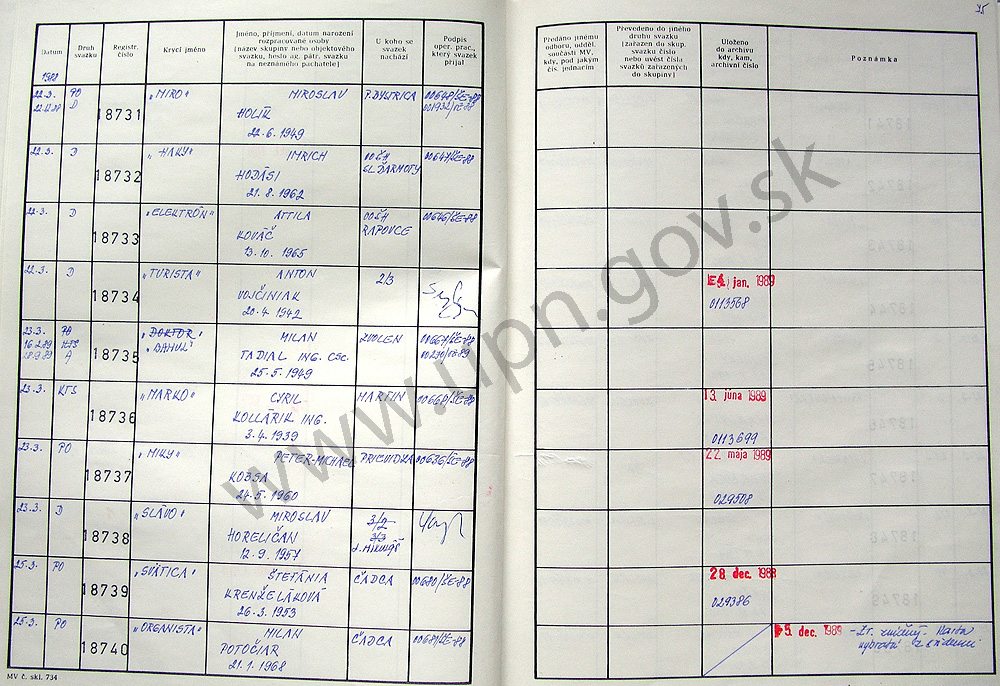 Datum
Druh svazku
Registr. číslo
Krycí jméno
Jméno, příjmení, datum narození
rozpracované osoby
(název skupiny nebo objektového
svazku, heslo ag. pátr. svazku
na neznámého pachatele)
U koho se
svazek
nachází
Podpis
oper. prac.,
který svazek
přijal
Předáno jinému
odboru, odděl.
součásti MV,
kdy, pod jakým
čís. jednacím
Převedeno do jiného
druhu svazku
(zařazen do skup.
svazku číslo
nebo uvést čísla
svazků zařazených
do skupiny)
Uloženo
do archivu
kdy, kam,
archivní číslo
Poznámka
1988
22.3. PO 18731 "MIRO" MIROSLAV P. BYSTRICA 00648/SE-88
D
HOLÍK
22.6.1949
22.3. D 18732 "HAKY" IMRICH OO ZNB 00647/SE-88
HODÁSI
SL. ĎARMOTY
21.8.1962
22.3. D 18733 "ELEKTRÓN" ATTILA 00646/SE-88
KOVÁČ RAPOVCE
13.10.1965
22.3. D 18734 "TURISTA" ANTON 2/3 jan. 1989
VOJČINIAK 0113568
20.4.1942
23.3. PO 18735 "DOKTOR" MILAN ZVOLEN
16.2.89 KTS "BAHUL" TADIAL ING. CSC.
A 25.5.1949
23.3. KTS 18736 "MARKO" CYRIL MARTIN 13. júna 1989
KOLLÁRIK ING.
3.4.1939 0113699
23.3. PO 18737 "MIKY" PETER-MICHAEL PRIEVIDZA 00636/SE-88 22. mája 1989
KOBSA
24.5.1960 029508
23.3. D 18738 "SLÁVO" MIROSLAV 3/2
HORELIČAN 3/3
12.9.1957 L. Mikuláš
25.3. PO 18739 "SVÄTICA" ŠTEFÁNIA ČADCA 00680/SE-88 28. dec. 1988
KRENŽELÁKOVÁ 029386
26.3.1953
25.3. PO 18740 "ORGANISTA" MILAN ČADCA 00681/SE-88 5. dec. 1989 - Zv. zničený. Karta
POTOČIAR vybratá z evidencie
21.1.1968
MV č. skl. 734
www.upn.gov.sk